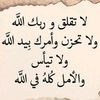 لا تقلق و ربك اللَّه
ولا تحزن وأمرك بيد اللَّه
ولا تيأس
والأمل كُلهُ في اللَّه